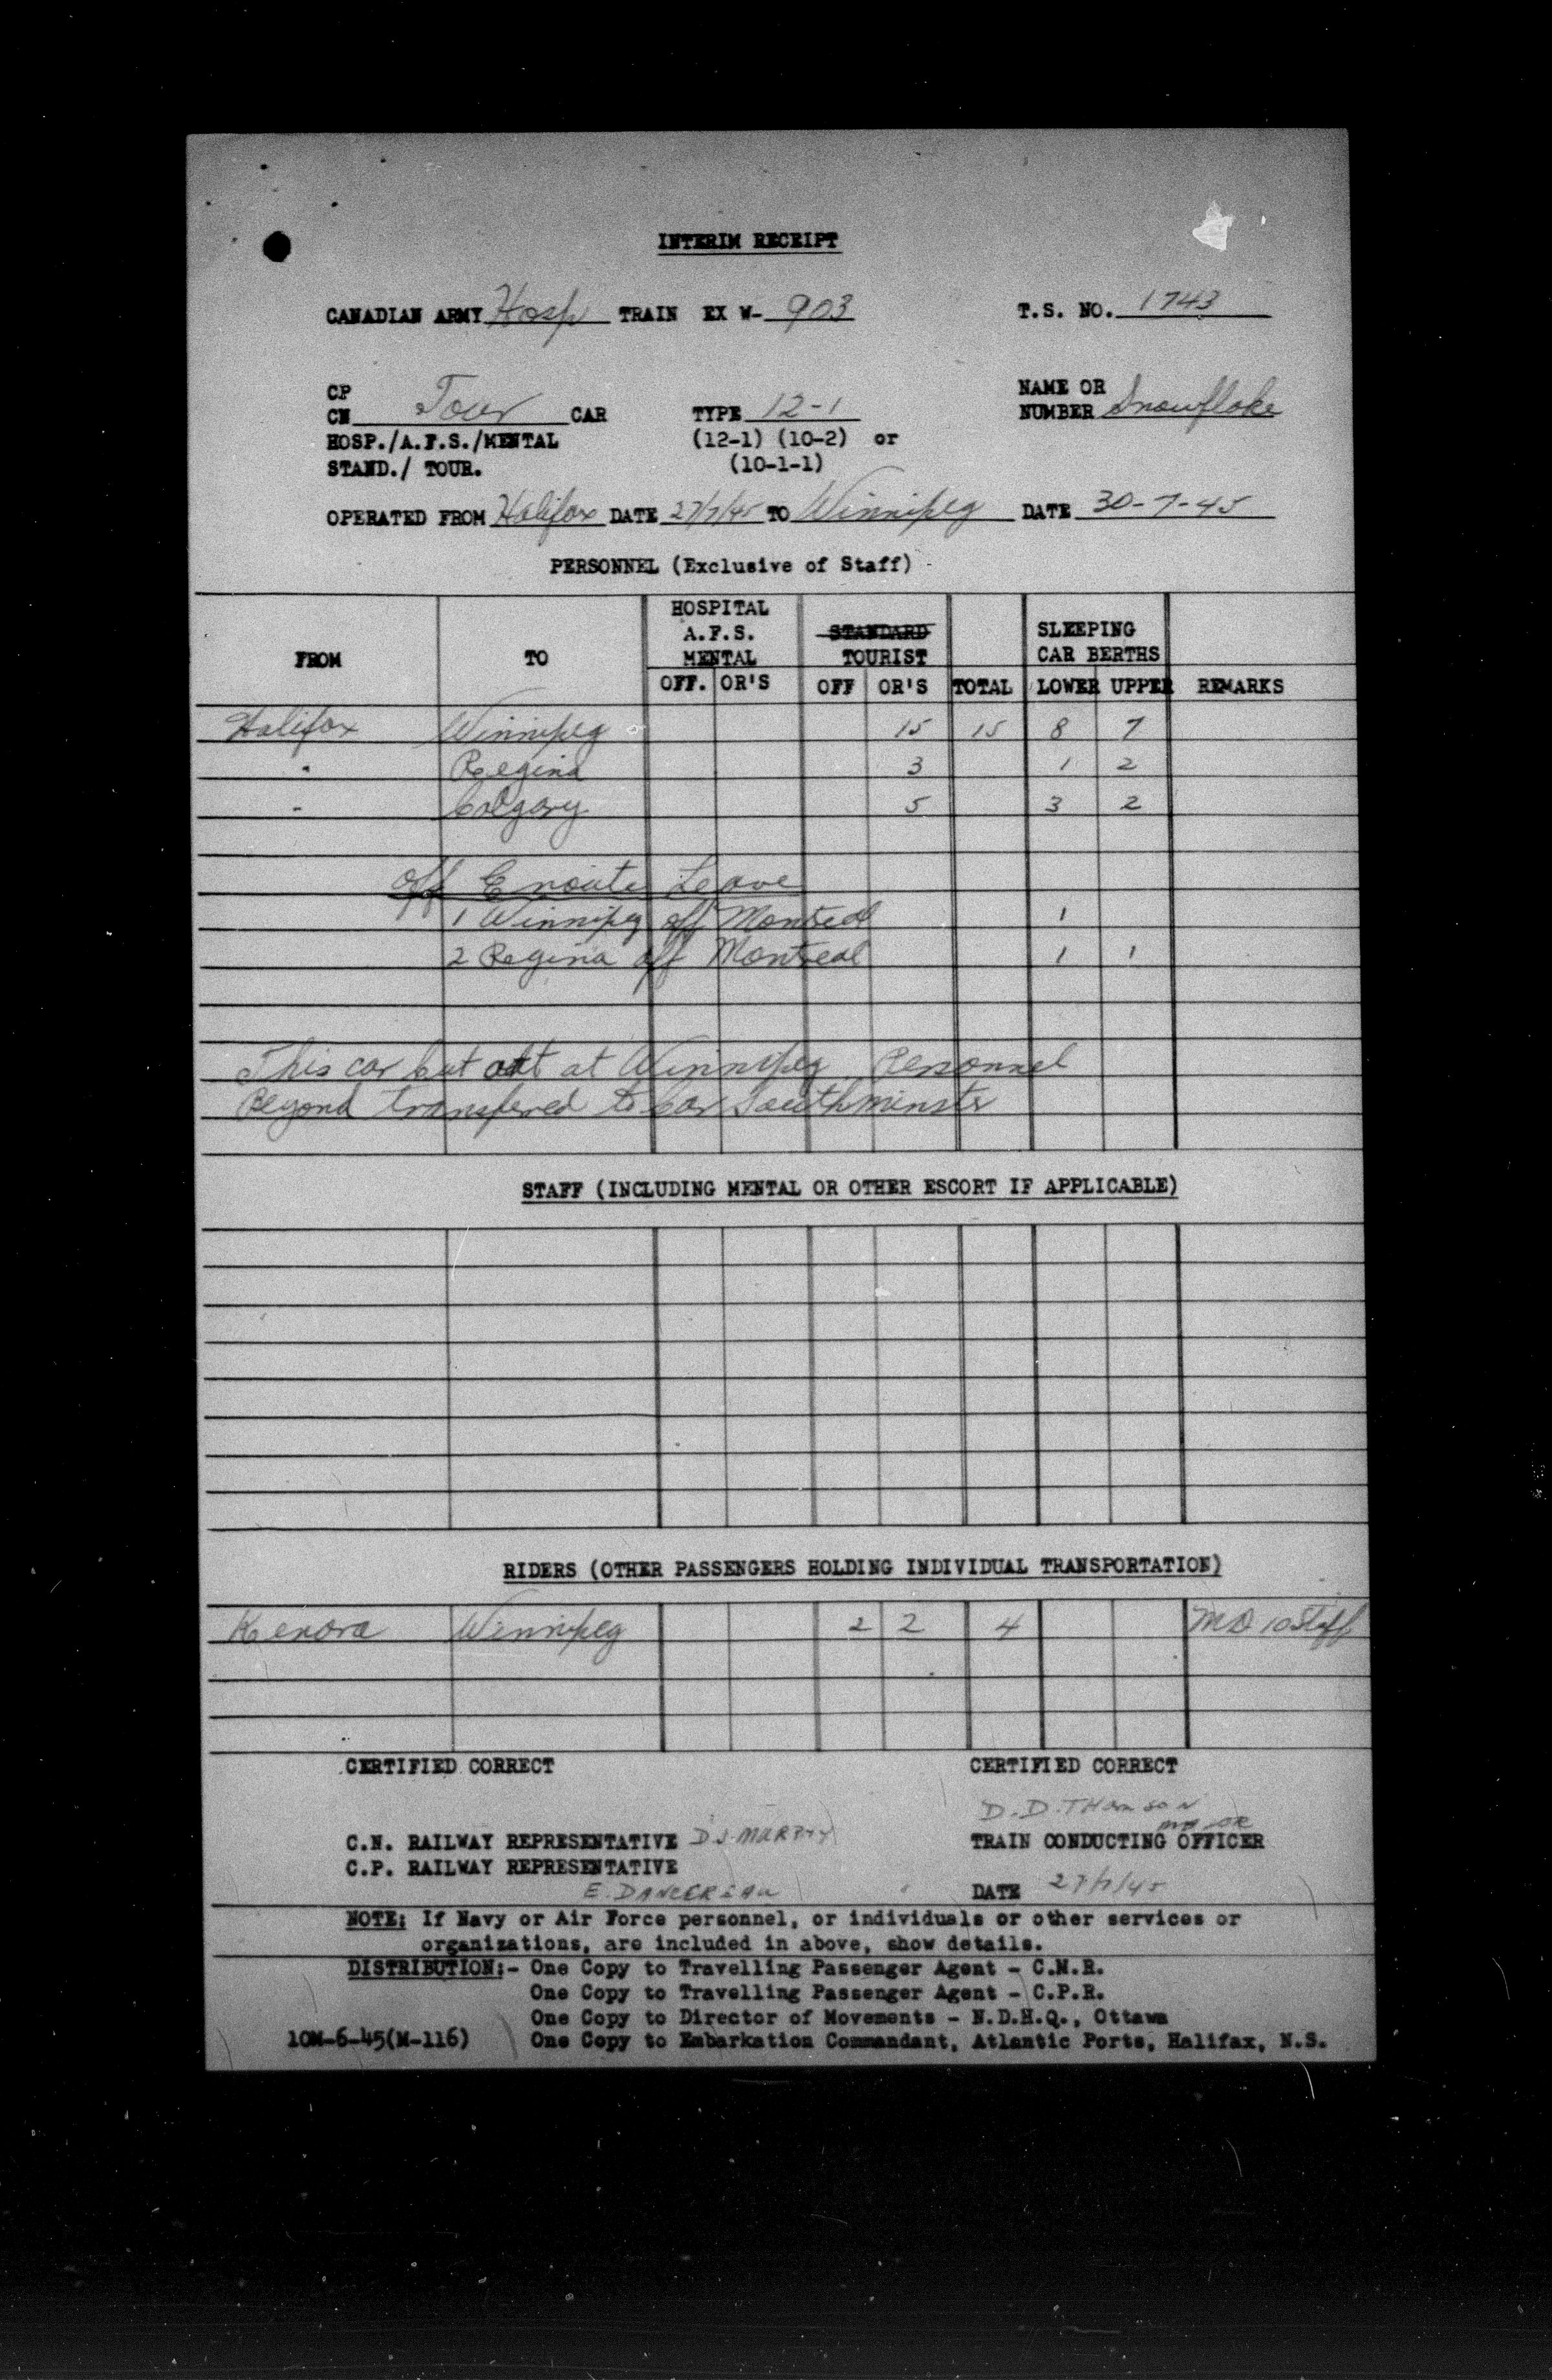 INTERIM RECEIPT
CANADIAN ARMY Hosp TRAIN EX W- 903 T.S. NO. 1743
CP
CN Tour CAR TYPE 12-1 NAME OR NUMBER Snowflake
HOSP./A.F.S./MENTAL (12-1) (10-2) or
STAND./ TOUR. (10-1-1)
OPERATED FROM Halifax DATE 27/7/45 TO Winnipeg DATE 30-7-45
PERSONNEL (Exclusive of Staff)
FROM TO HOSPITAL A.F.S. MENTAL STANDARD TOURIST SLEEPING CAR BERTHS
OFF. OR'S OFF OR'S TOTAL LOWER UPPER REMARKS
Halifax Winnipeg 15 15 8 7
" Regina 3 1 2
" Calgary 5 3 2
off Enroute Leave
1 Winnipeg off Montreal 1
2 Regina off Montreal 1 1
This car cut out at Winnipeg. Personnel
Beyond transfered to Car Southminster
STAFF (INCLUDING MENTAL OR OTHER ESCORT IF APPLICABLE)
RIDERS (OTHER PASSENGERS HOLDING INDIVIDUAL TRANSPORTATION)
Kenora Winnipeg 2 2 4 MD 10 Staff
CERTIFIED CORRECT CERTIFIED CORRECT
D.D. THOMSON
MAJOR
C.N. RAILWAY REPRESENTATIVE D.J. MURPHY TRAIN CONDUCTING OFFICER
C.P. RAILWAY REPRESENTATIVE
E. DANCEREAU DATE 27/7/45
NOTE: If Navy or Air Force personnel, or individuals or other services or
organizations, are included in above, show details.
DISTRIBUTION:- One Copy to Travelling Passenger Agent - C.N.R.
One Copy to Travelling Passenger Agent - C.P.R.
One Copy to Director of Movements - N.D.H.Q., Ottawa
10M-6-45(M-116) One Copy to Embarkation Commandant, Atlantic Ports, Halifax, N.S.